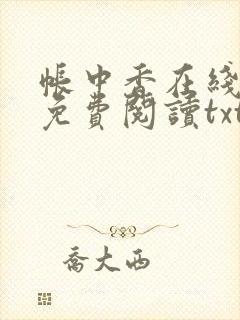 帳中香在綫
免費閱讀txt
喬大西